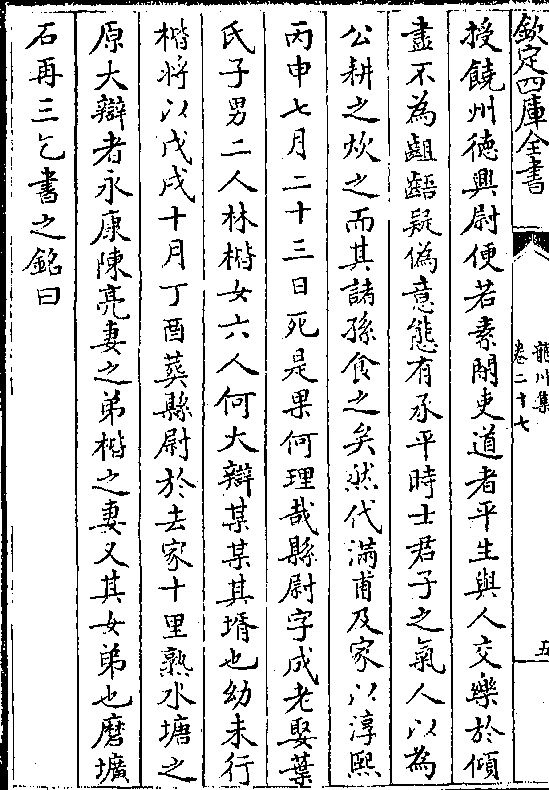 欽定四庫全書
龍川集
卷二十七
五
授饒州徳興尉便若素閑吏道者平生與人交樂於傾
盡不為齟齬疑偽意態有承平時士君子之氣人以為
公耕之炊之而其諸孫食之矣然代滿甫及家以淳熙
丙申七月二十三日死是果何理哉縣尉字成老娶葉
氏子男二人林楷女六人何大辯某某其壻也幼未行
楷將以戊戌十月丁酉葬縣尉於去家十里熟水塘之
原大辯者永康陳亮妻之弟楷之妻又其女弟也磨壙
石再三乞書之銘曰